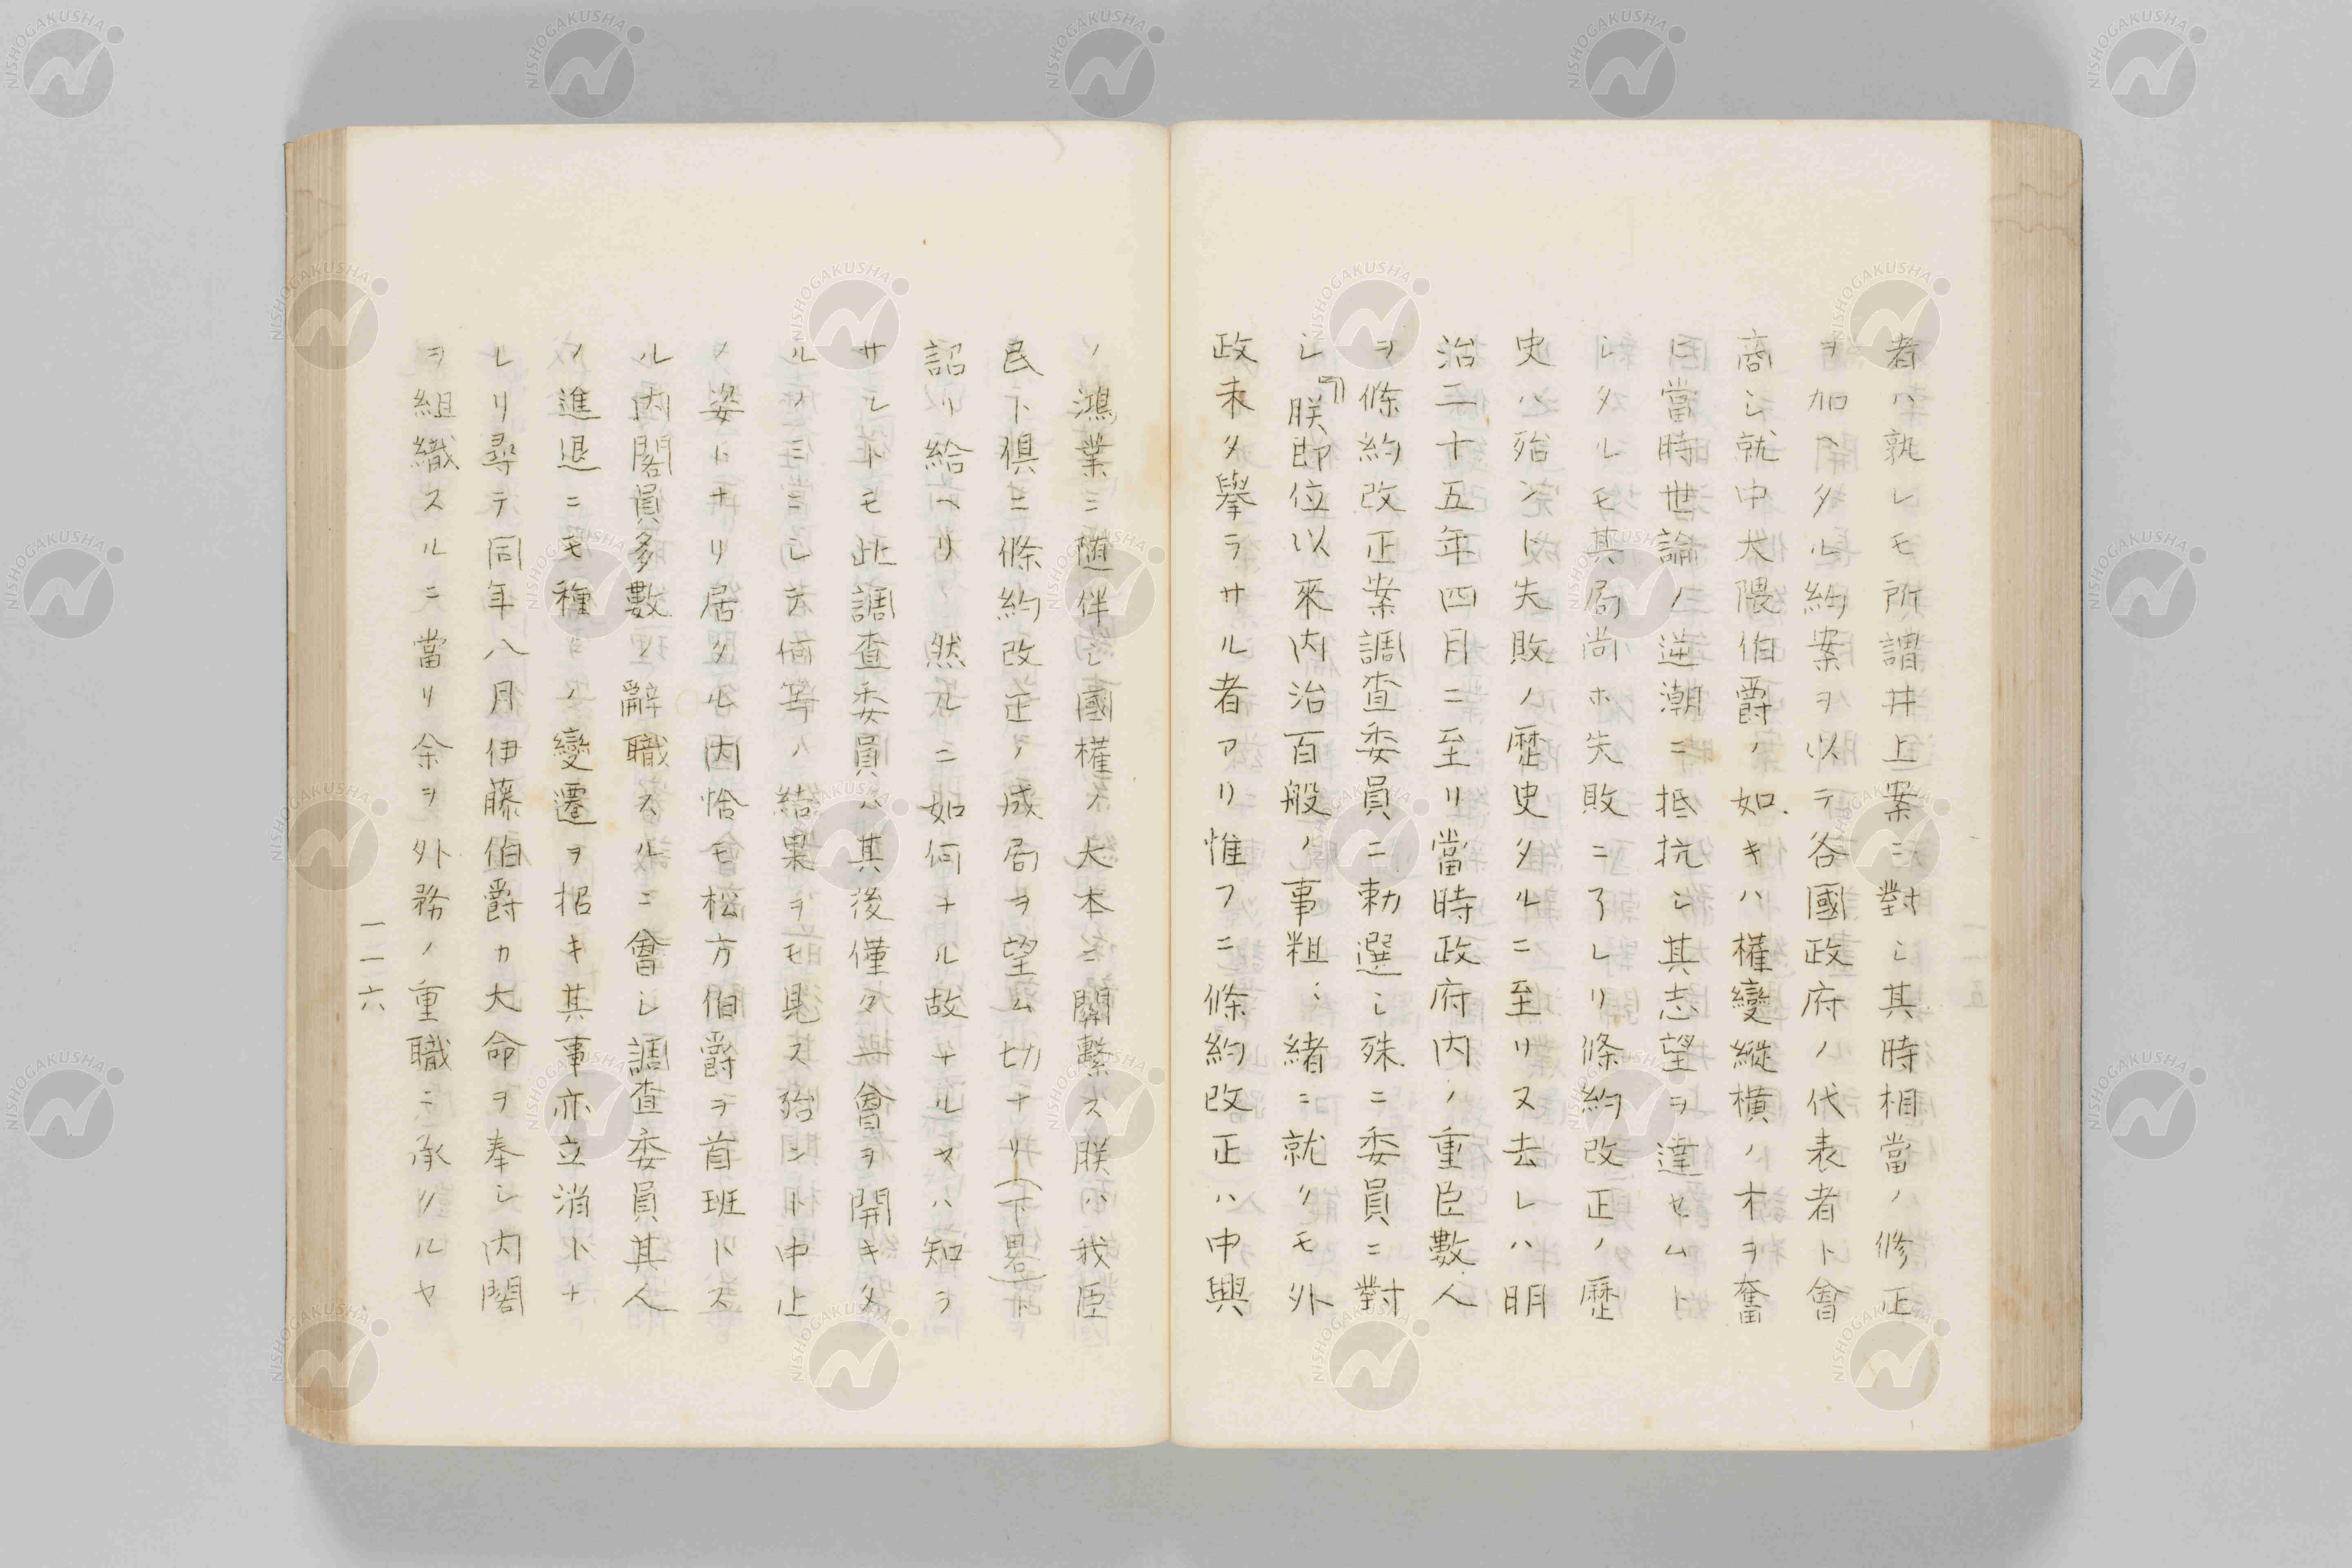 者ハ孰レモ所謂井上案ニ對シ其時相當ノ修正
ヲ加ヘタル約案ヲ以テ各國政府ノ代表者ト會
商シ就中大隈伯爵ノ如キハ權變縱橫ノ才ヲ奮
ヒ當時世論ノ逆潮ニ抵抗シ其志望ヲ達セムト
シタルモ其局尚ホ失敗ニ了レリ條約改正ノ歷
史ハ殆ント失敗ノ歷史タルニ至リヌ去レハ明
治二十五年四月ニ至リ當時政府內ノ重臣數人
ヲ條約改正案調查委員ニ勅選シ殊ニ委員ニ對
シ『朕即位以來內治百般ノ事粗〻緒ニ就クモ外
政未タ擧ラサル者アリ惟フニ條約改正ハ中興
ノ鴻業ニ隨伴シ國權ノ大本ニ關繫ス朕ハ我臣
民ト俱ニ條約改正ノ成局ヲ望ム切ナリ(下畧)ト
詔リ給ヘリ然ルニ如何ナル故ナルヤハ知ラ
サレトモ此調查委員ハ其後僅々一會ヲ開キタ
ルノミニシテ何等ノ結果ヲモ見ス殆ント中止
ノ姿トナリ居タル內恰モ松方伯爵ヲ首班トス
ル內閣員多數ノ辭職スルニ會シ調查委員其人
ノ進退ニモ種々ノ變遷ヲ招キ其事亦立消トナ
レリ尋テ同年八月伊藤伯爵カ大命ヲ奉シ內閣
ヲ組織スルニ當リ余ヲ外務ノ重職ニ承クルヤ
一一六
NISHOGAKUSHA